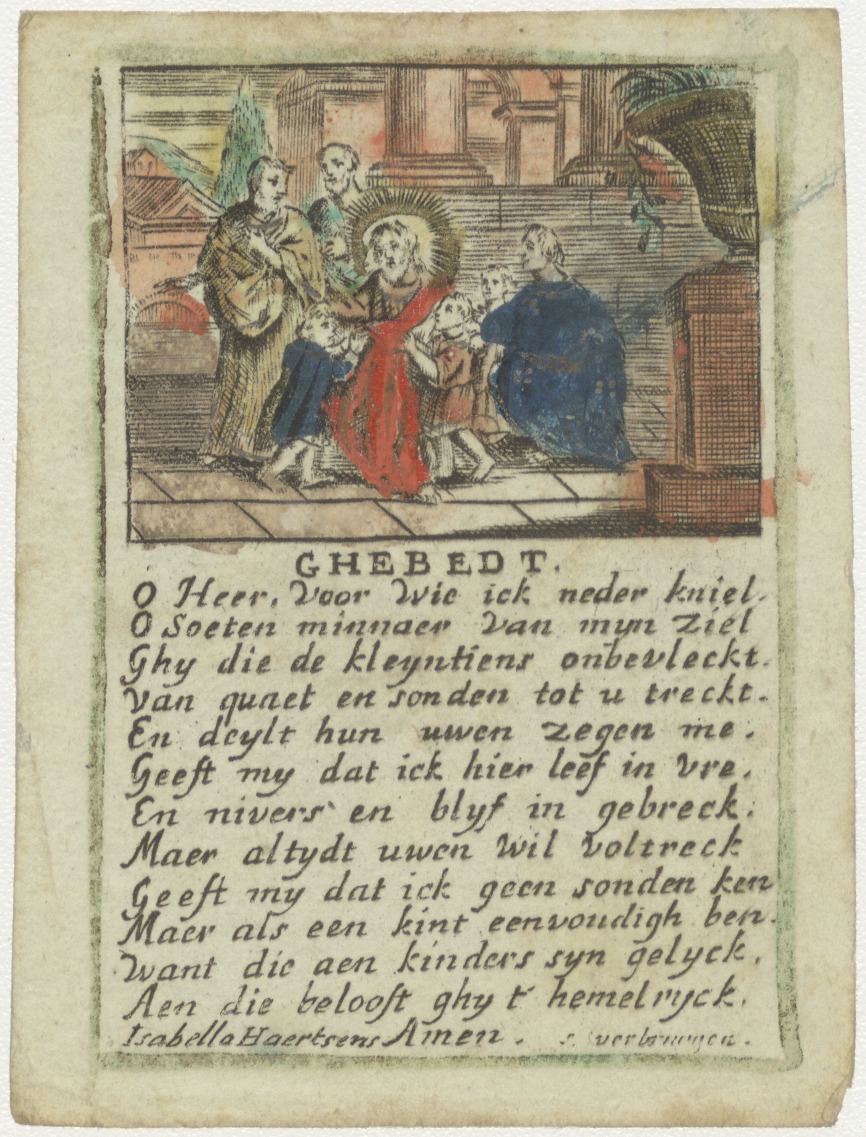 GHEBEDT.
O Heer, Voor Wie ick neder kniel.
O Soeten minnaer Van myn Ziel
Ghy die de kleyntiens onbevleckt.
Van quaet en sonden tot u treckt.
En deylt hun uwen zegen me.
Geeft my dat ick hier leef in Vre.
En nivers en blyf in gebreck.
Maer altydt uwen Wil Voltreck
Geeft my dat ick geen sonden ken
Maer als een kint eenvoudigh ben.
Want die aen kinders syn gelyck,
Aen die belooft ghy t' hemelryck.
Isabella Haertsens Amen. verbruggen.